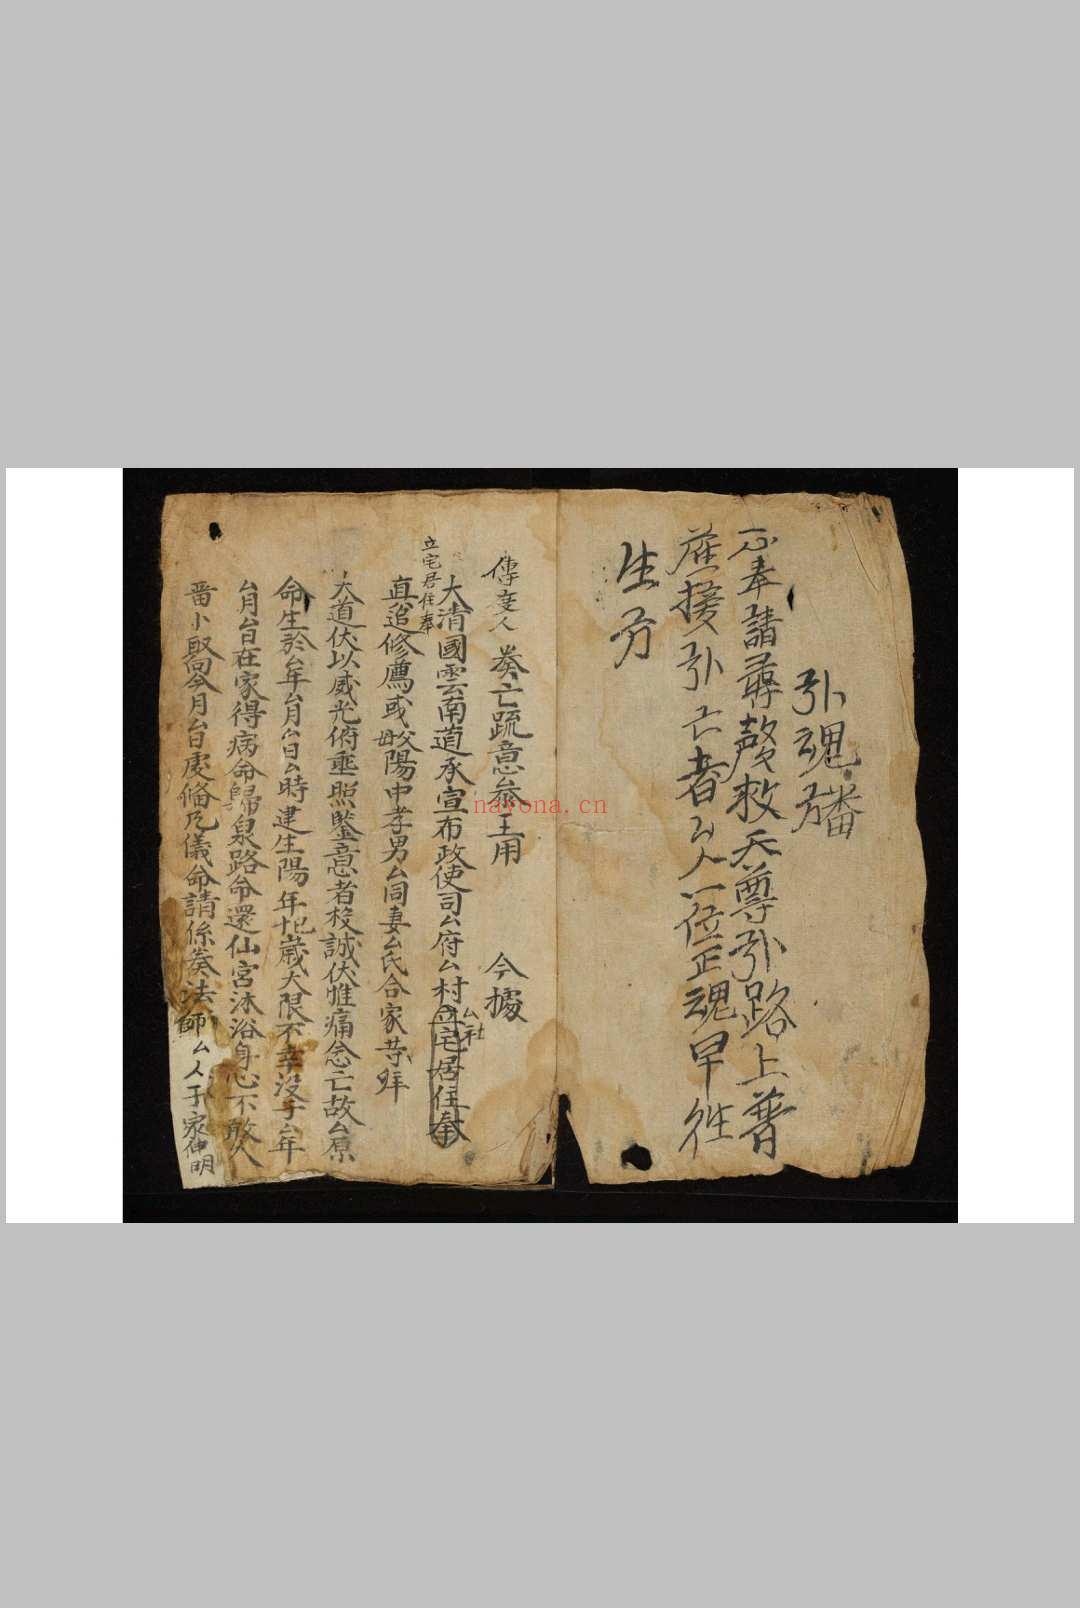 引魂旛
一心奉請尋聲救天尊引路上普
座接引亡者厶人一位正魂早往
生方
傳度人 奏亡疏意叅王用 今據
大清國雲南道承宣布政使司厶府厶村立宅居住奉
厶社
立宅居住奉
真追修薦或父母陽中孝男厶同妻厶氏合家等拜
大道伏以威光俯垂照鑒意者投誠伏惟痛念亡故厶原
命生於厶年厶月厶日厶時建生陽年 歲大限不幸沒于厶年
厶月厶日在家得病命歸泉路命還仙宮沐浴身心不敢久
畱小取今月厶日處俻凡儀命請係奏法師厶人于家伸明
nayona.cn